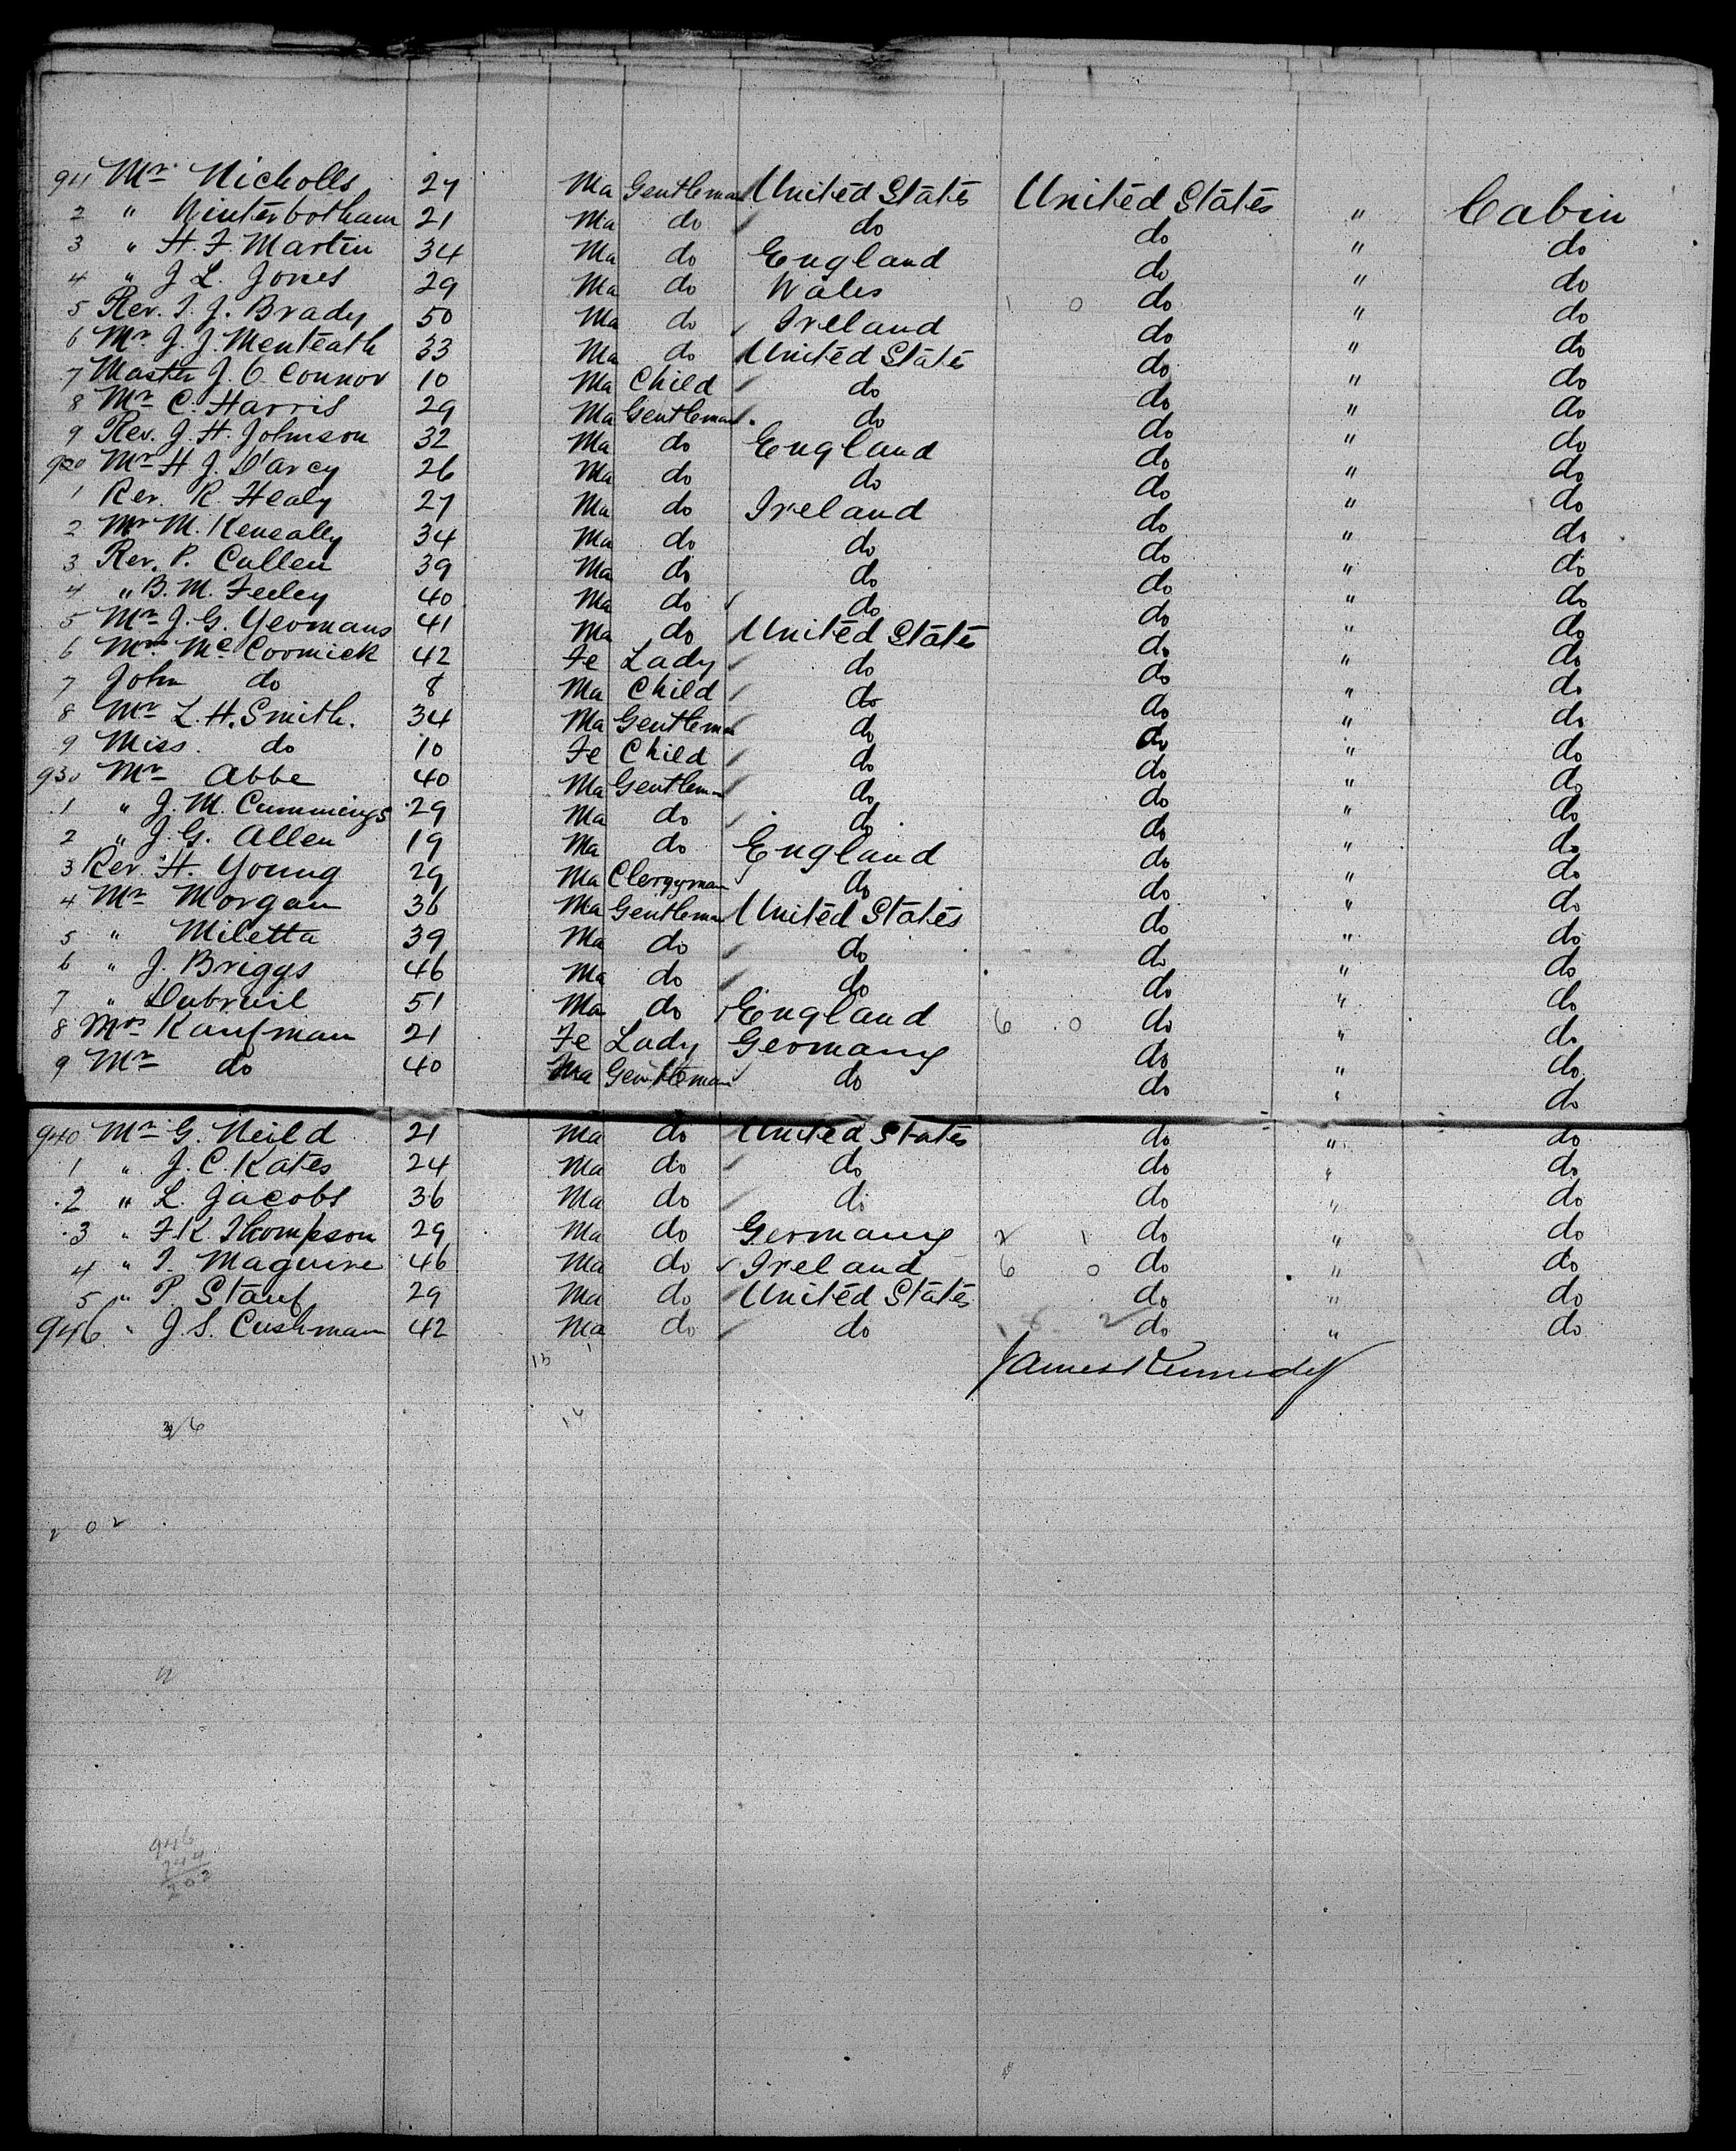 911 Mr Nicholls 27 Ma Gentleman United States United States " Cabin
2 " Winterbotham 21 Ma do do do " do
3 " H. F. Martin 34 Ma do England do " do
4 " J L. Jones 29 Ma do Wales do " do
5 Rev. T. J. Brady 50 Ma do Ireland do " do
6 Mr J. J. Menteath 33 Ma do United States do " do
7 Master J. O. Connor 10 Ma Child do do " do
8 Mr C. Harris 29 Ma Gentleman do do " do
9 Rev. J. H. Johnson 32 Ma do England do " do
920 Mr H J. D'arcy 26 Ma do do do " do
1 Rev. R. Healy 27 Ma do Ireland do " do
2 Mr M. Keneally 34 Ma do do do " do
3 Rev. P. Cullen 39 Ma do do do " do
4 " B. M. Feeley 40 Ma do do do " do
5 Mr J. G. Yeomans 41 Ma do United States do " do
6 Mrs Mc Cormick 42 Fe Lady do do " do
7 John do 8 Ma Child do do " do
8 Mr L. H. Smith. 34 Ma Gentleman do do " do
9 Miss. do 10 Fe Child do do " do
930 Mr Abbe 40 Ma Gentleman do do " do
1 " J. M. Cummings 29 Ma do do do " do
2 " J. G. Allen 19 Ma do England do " do
3 Rev. H. Young 29 Ma Clergyman do do " do
4 Mr Morgan 36 Ma Gentleman United States do " do
5 " Miletta 39 Ma do do do " do
6 " J. Briggs 46 Ma do do do " do
7 " Dubruil 51 Ma do England 6 0 do " do
8 Mrs Kaufman 21 Fe Lady Germany do " do
9 Mr do 40 Ma Gentleman do do " do
940 Mr G. Neild 21 Ma do United States do " do
1 " J. C. Kates 24 Ma do do do " do
2 " L. Jacobs 36 Ma do do do " do
3 " F. K. Thompson 29 Ma do Germany 2 1 do " do
4 " T. Maguire 46 Ma do Ireland 6 0 do " do
5 " P Stauf 29 Ma do United States do " do
946 " J. S. Cushman 42 Ma do do do " do
James Kennedy
202
946
744
202